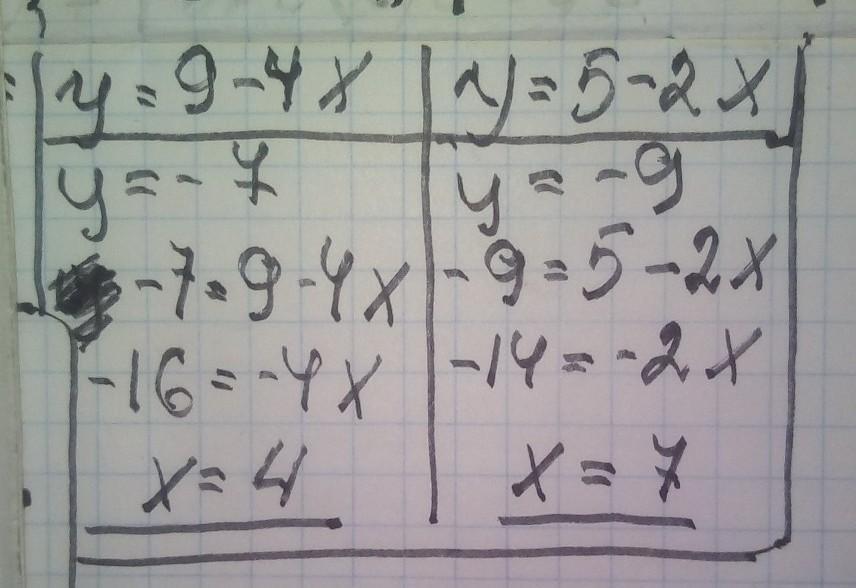 y = 9 - 4x
y = - 7
-7 = 9 - 4x
-16 = -4x
x = 4
y = 5 - 2x
y = -9
-9 = 5 - 2x
-14 = -2x
x = 7